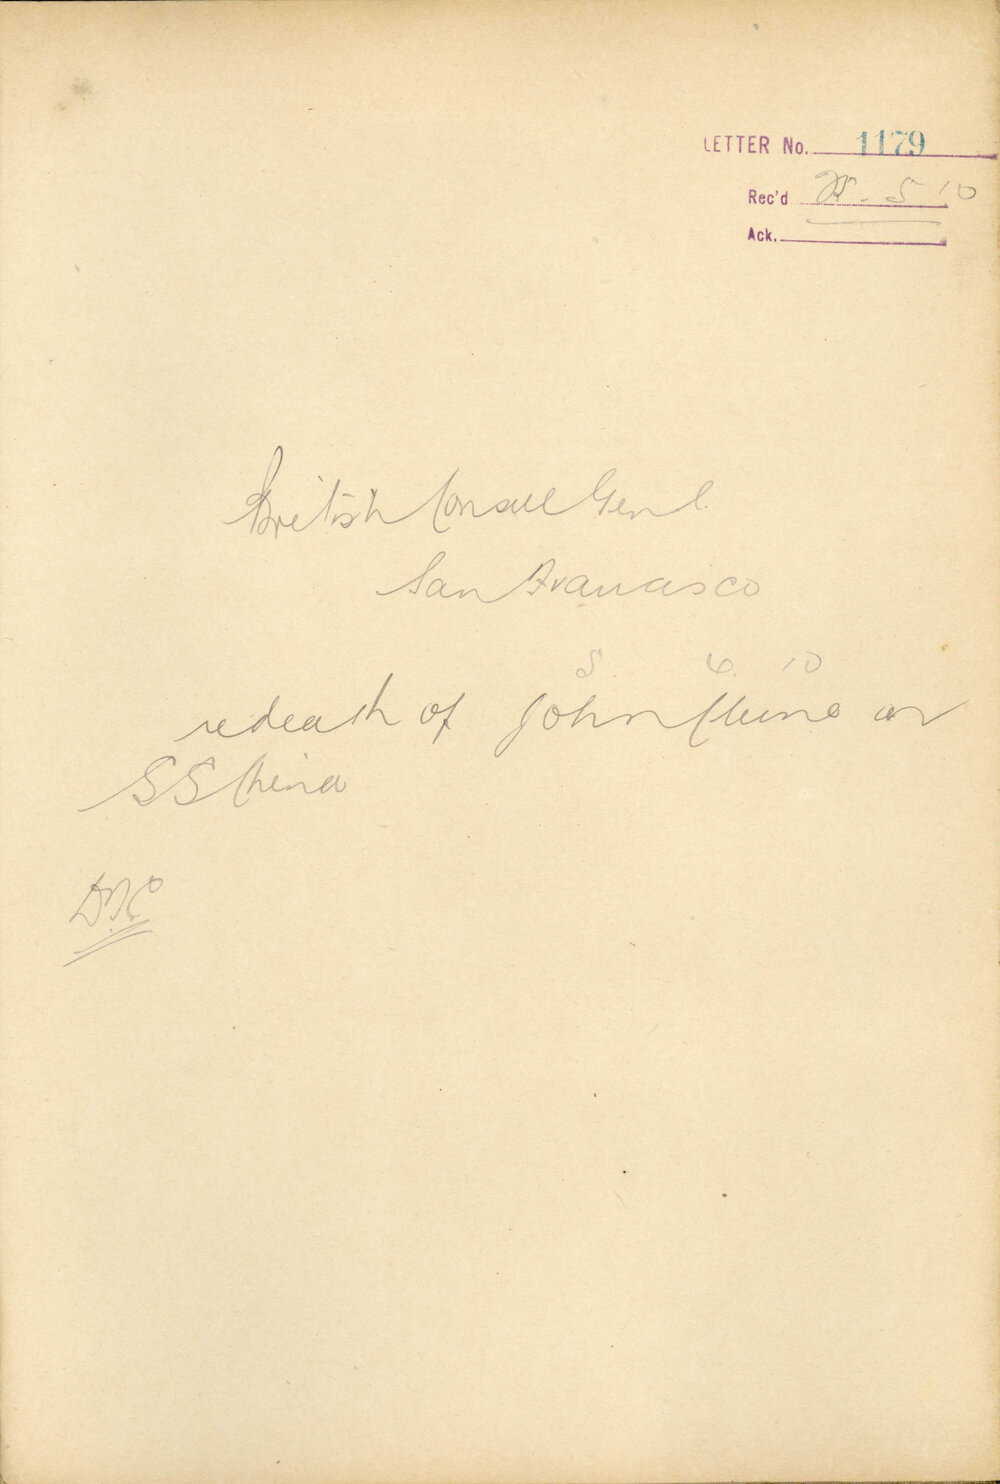 LETTER No. 1179
Rec'd 25. 5 '10
Ack.
British Consul Genl.
San Francisco
5. 4. 10
re death of John on
SS China